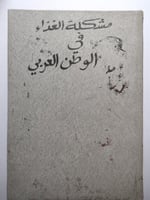 مشكلة الغذاء
في
الوطن العربي